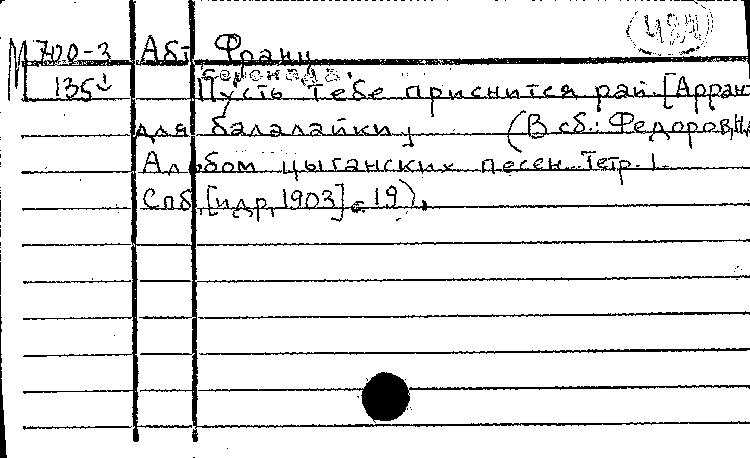 484
М 700-3 Абт Франц
Серенада.
135 Пусть тебе приснится рай. [Арранж
для балалайки, (В сб.: Федоров, Н.
Альбом цыганских песен. Тетр. 1.
Спб, [идр, 1903] с 19).